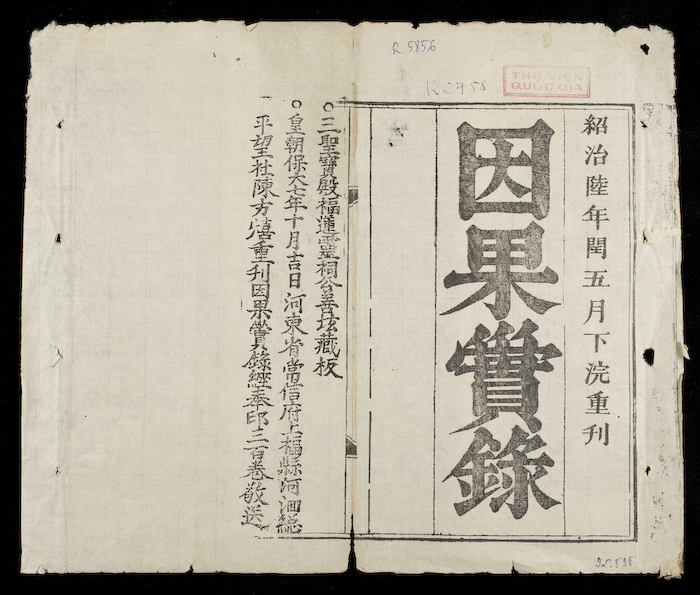 R. 5856
R 2758
THƯ VIỆN
QUỐC GIA
紹治陸年閏五月下浣重刊
因果實錄
三聖寶殿福蓮靈祠公善坛藏板
皇朝保大七年十月吉日河東省常信府上福縣河洄総
平望社陳方熺重刊因果實錄經奉印三百卷敬送